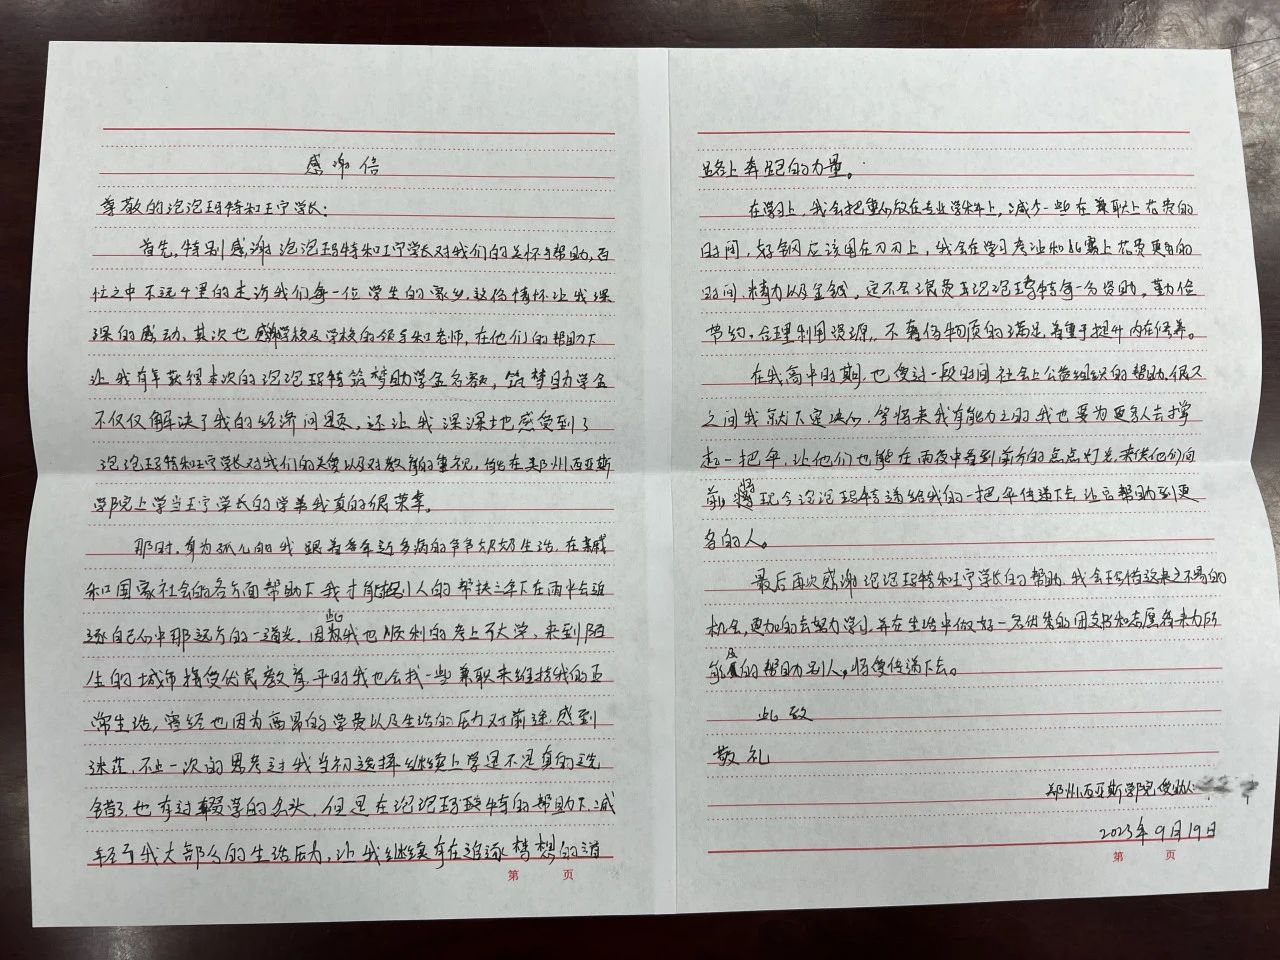 感谢信
尊敬的泡泡玛特和王宁学长:
首先,特别感谢泡泡玛特和王宁学长对我们的关怀与帮助,百
忙之中不远千里的走访我们每一位学生的家乡,这份情怀让我深
深的感动,其次也感谢学校及学校的领导和老师,在他们的帮助下
让我有幸获得本次的泡泡玛特筑梦助学金名额,筑梦助学金
不仅仅解决了我的经济问题,还让我深深地感受到了
泡泡玛特和王宁学长对我们的关爱以及对教育的重视,能在郑州西亚斯
学院上学当王宁学长的学弟我真的很荣幸。
那时,身为孤儿的我跟着年迈多病的爷爷奶奶生活,在亲戚
和国家社会的各方面帮助下我才能在别人的帮扶之下在雨中去追
逐自己心中那远方的一道光,因此我也顺利的考上了大学,来到陌
生的城市接受优良教育,平时我也会找一些兼职来维持我的正
常生活,曾经也因为高昂的学费以及生活的压力对前途感到
迷茫,不止一次的思考过我当初选择继续上学是不是真的选
错了,也有过辍学的念头,但是在泡泡玛特的帮助下,减
轻了我大部分的生活压力,让我继续有在追逐梦想的道
路上奔跑的力量。
在学习上,我会把重心放在专业学科上,减少一些在兼职上花费的
时间,好钢应该用在刀刃上,我会在学习考证和比赛上花费更多的
时间、精力以及金钱,定不会浪费泡泡玛特每一分资助,勤俭
节约,合理利用资源,不奢侈物质的满足着重于提升内在修养。
在我高中时期,也受过一段时间社会上公益组织的帮助,很久
之间我就下定决心,等将来我有能力之时我也要为更多人去撑
起一把伞,让他们也能在雨夜中看到前方的点点灯光来供他们向
前,将现今泡泡玛特递给我的一把伞传递下去,让它帮助到更
多的人。
最后再次感谢泡泡玛特和王宁学长的帮助,我会珍惜这来之不易的
机会,更加的去努力学习,并在生活中做好一名优秀的团支书和志愿者来力所
能及的帮助别人,将爱传递下去。
此致
敬礼
郑州西亚斯学院受助人:
2023年9月19日
第 页
第 页